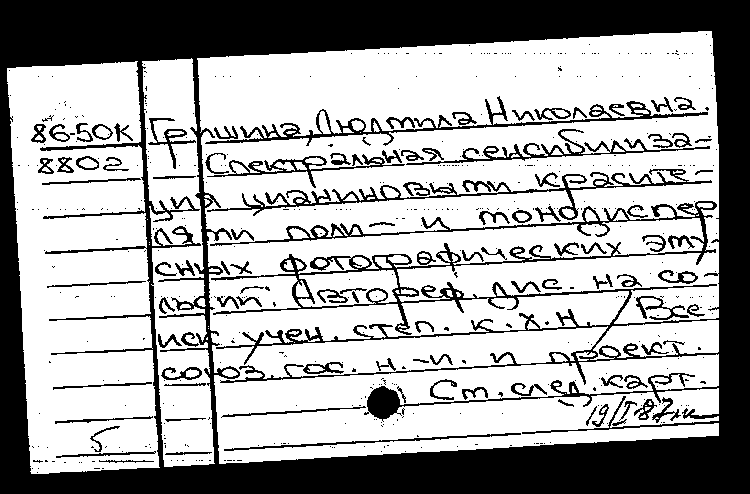 86-50К Гришина, Людмила Николаевна.
8802 Спектральная сенсибилиза-
ция цианиновыми красите-
лями поли- и монодиспер
сных фотографических эму-
льсий. Автореф. дис. на со-
иск. учен. степ. к.х.н. / Все-
союз. гос. н.-и. и проект.
Ст. след. карт.
19/I 87
5